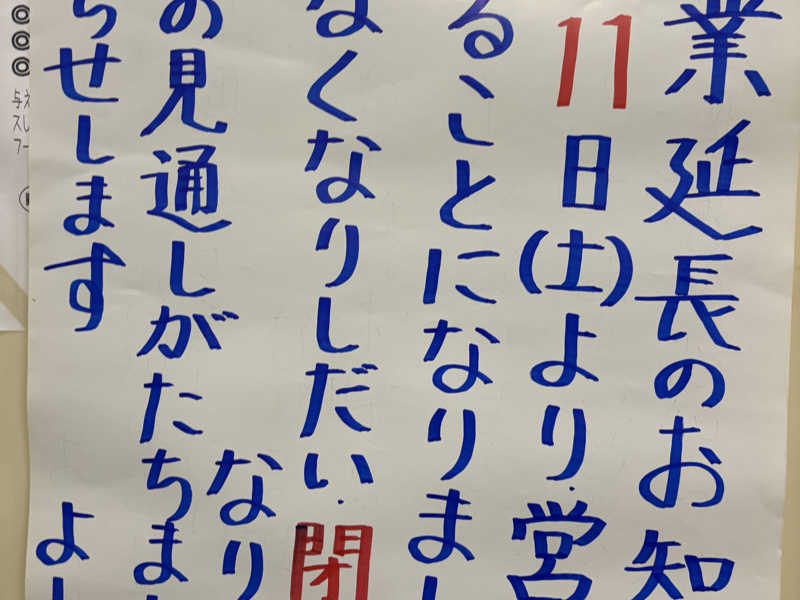 業延長のお知
11日(土)より.営
ることになりまし
なくなりしだい.閉
なり
の見通しがたちまし
らせします よし